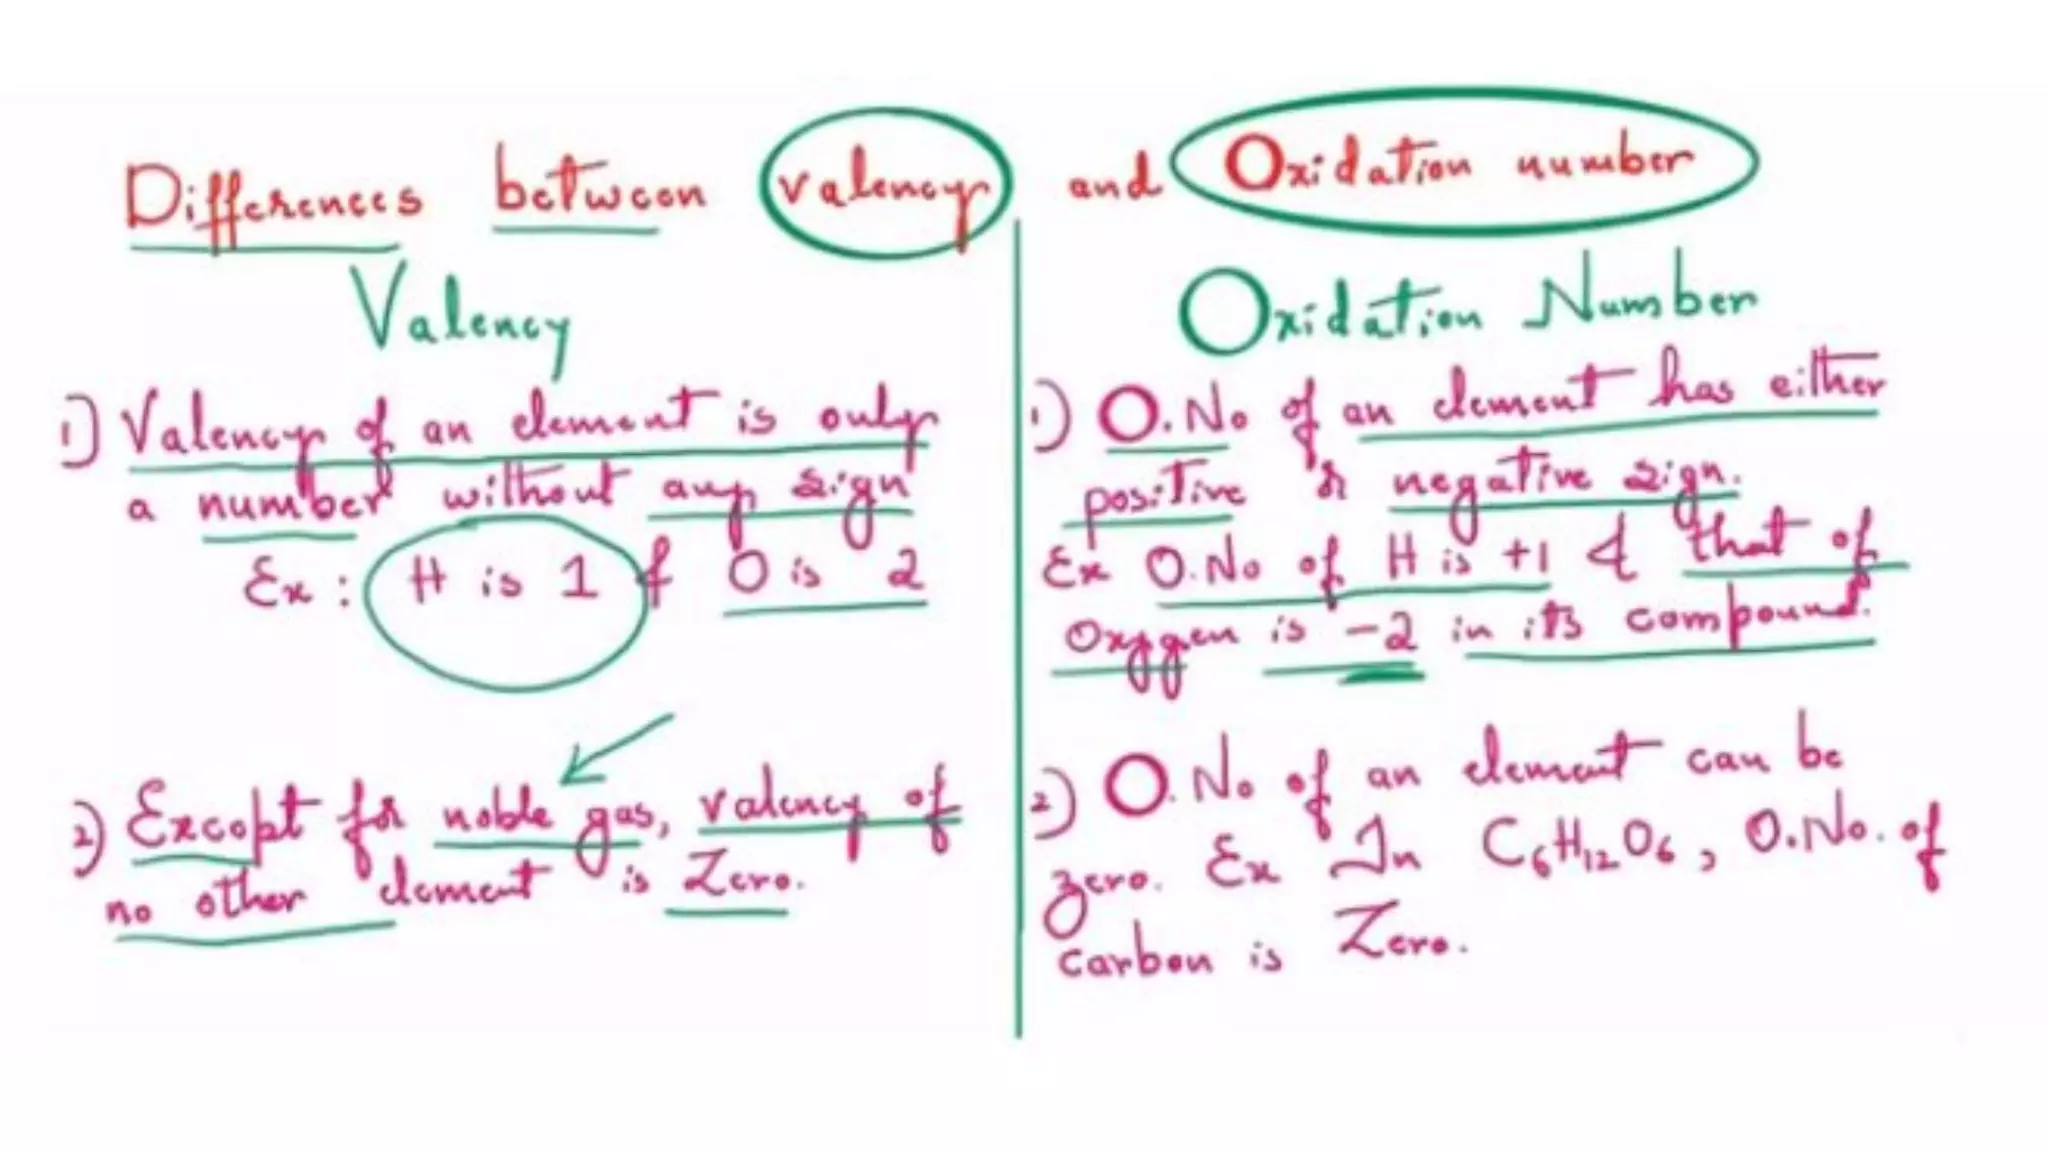 Differences between valency and Oxidation number
Valency
1) Valency of an element is only
a number without any sign
Ex: H is 1 & O is 2
2) Except for noble gas, valency of
no other element is Zero.
Oxidation Number
1) O.No of an element has either
positive or negative sign.
Ex O.No of H is +1 & that of
Oxygen is -2 in its compound.
2) O.No of an element can be
zero. Ex In C6H12O6, O.No. of
carbon is Zero.